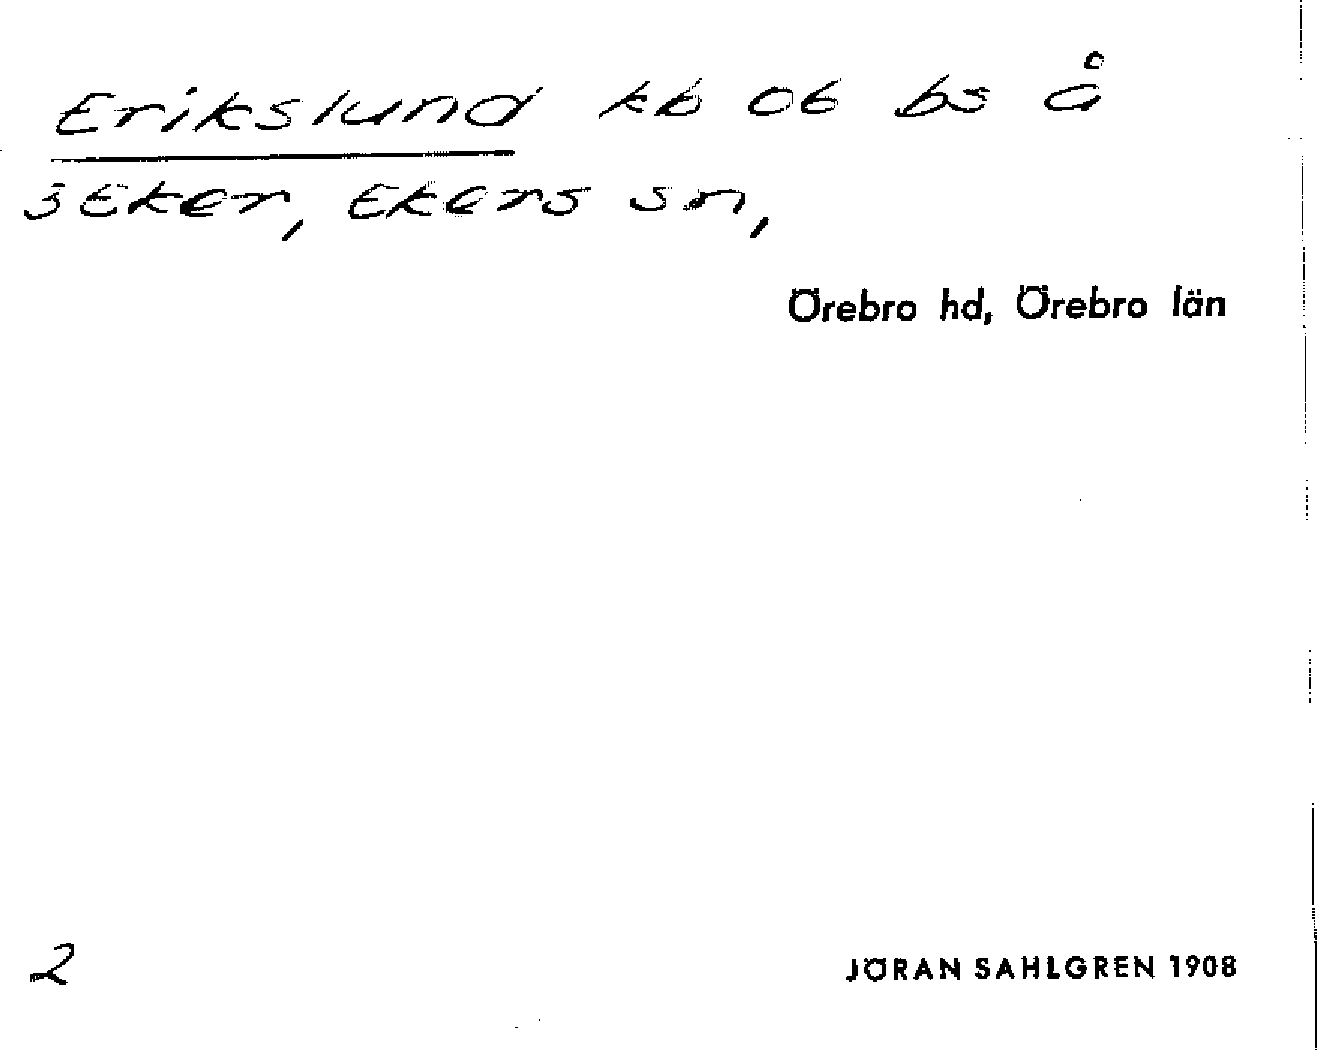 Erikslund kb 06 bs å
3 Eker, Ekers sn,
Örebro hd, Örebro län
2
JÖRAN SAHLGREN 1908